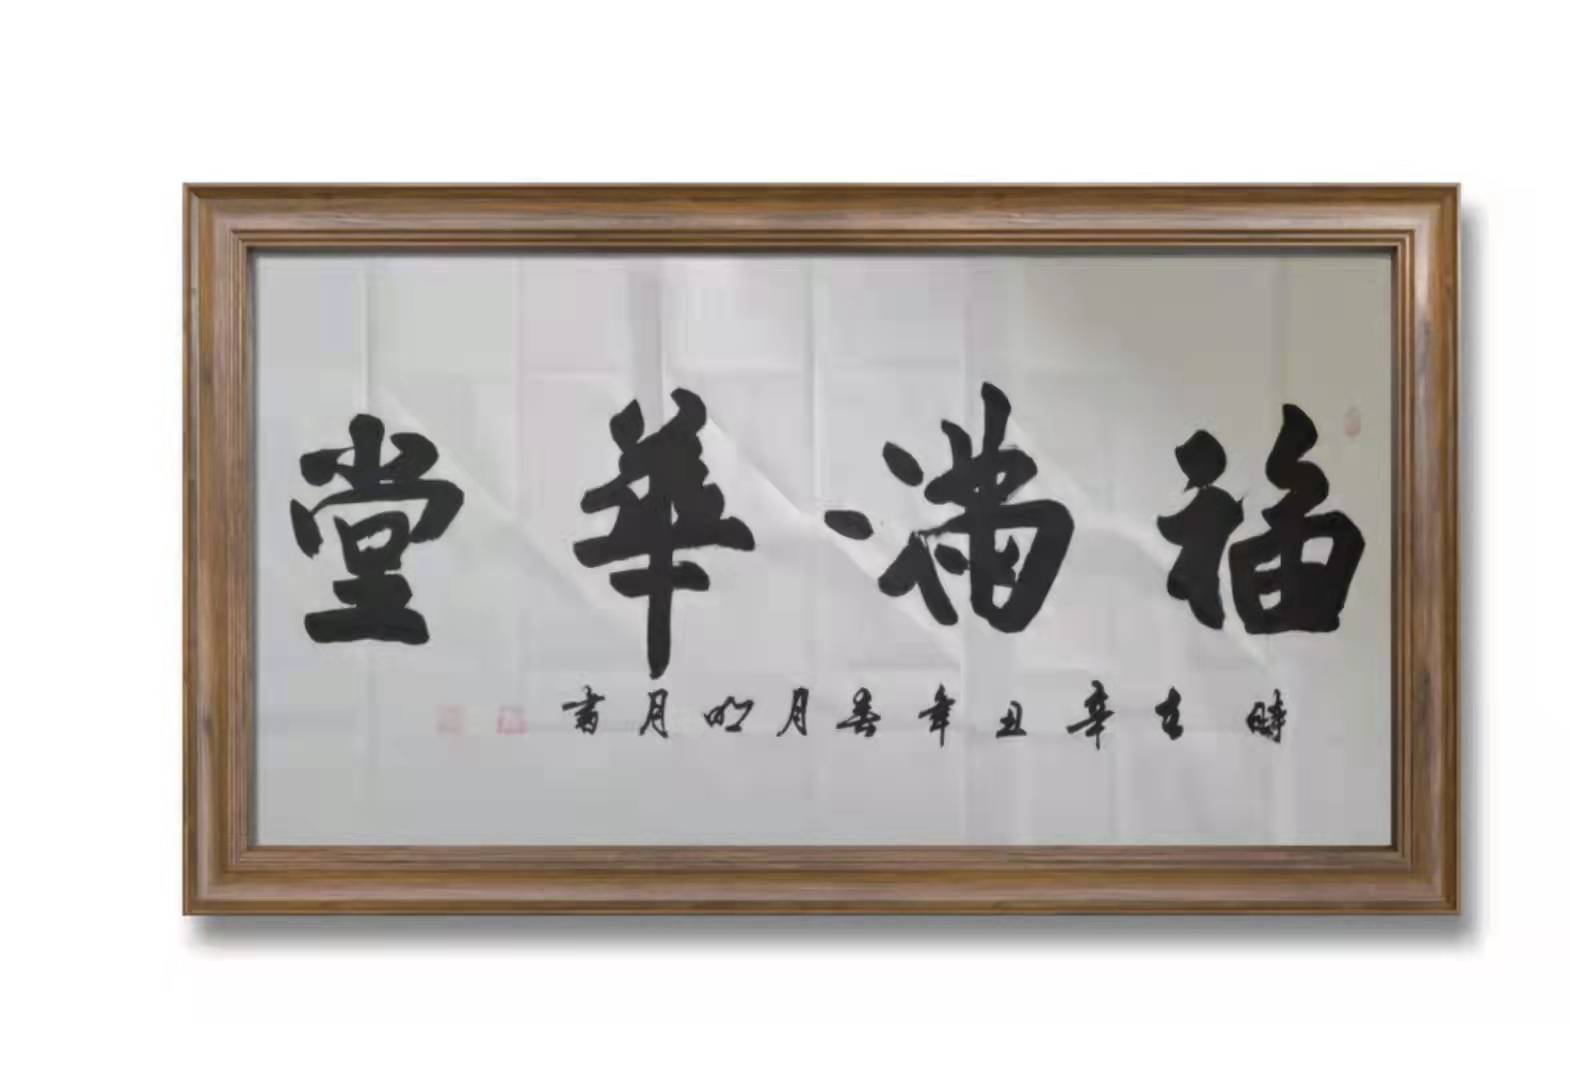 福滿華堂
時在辛丑年春月明月書